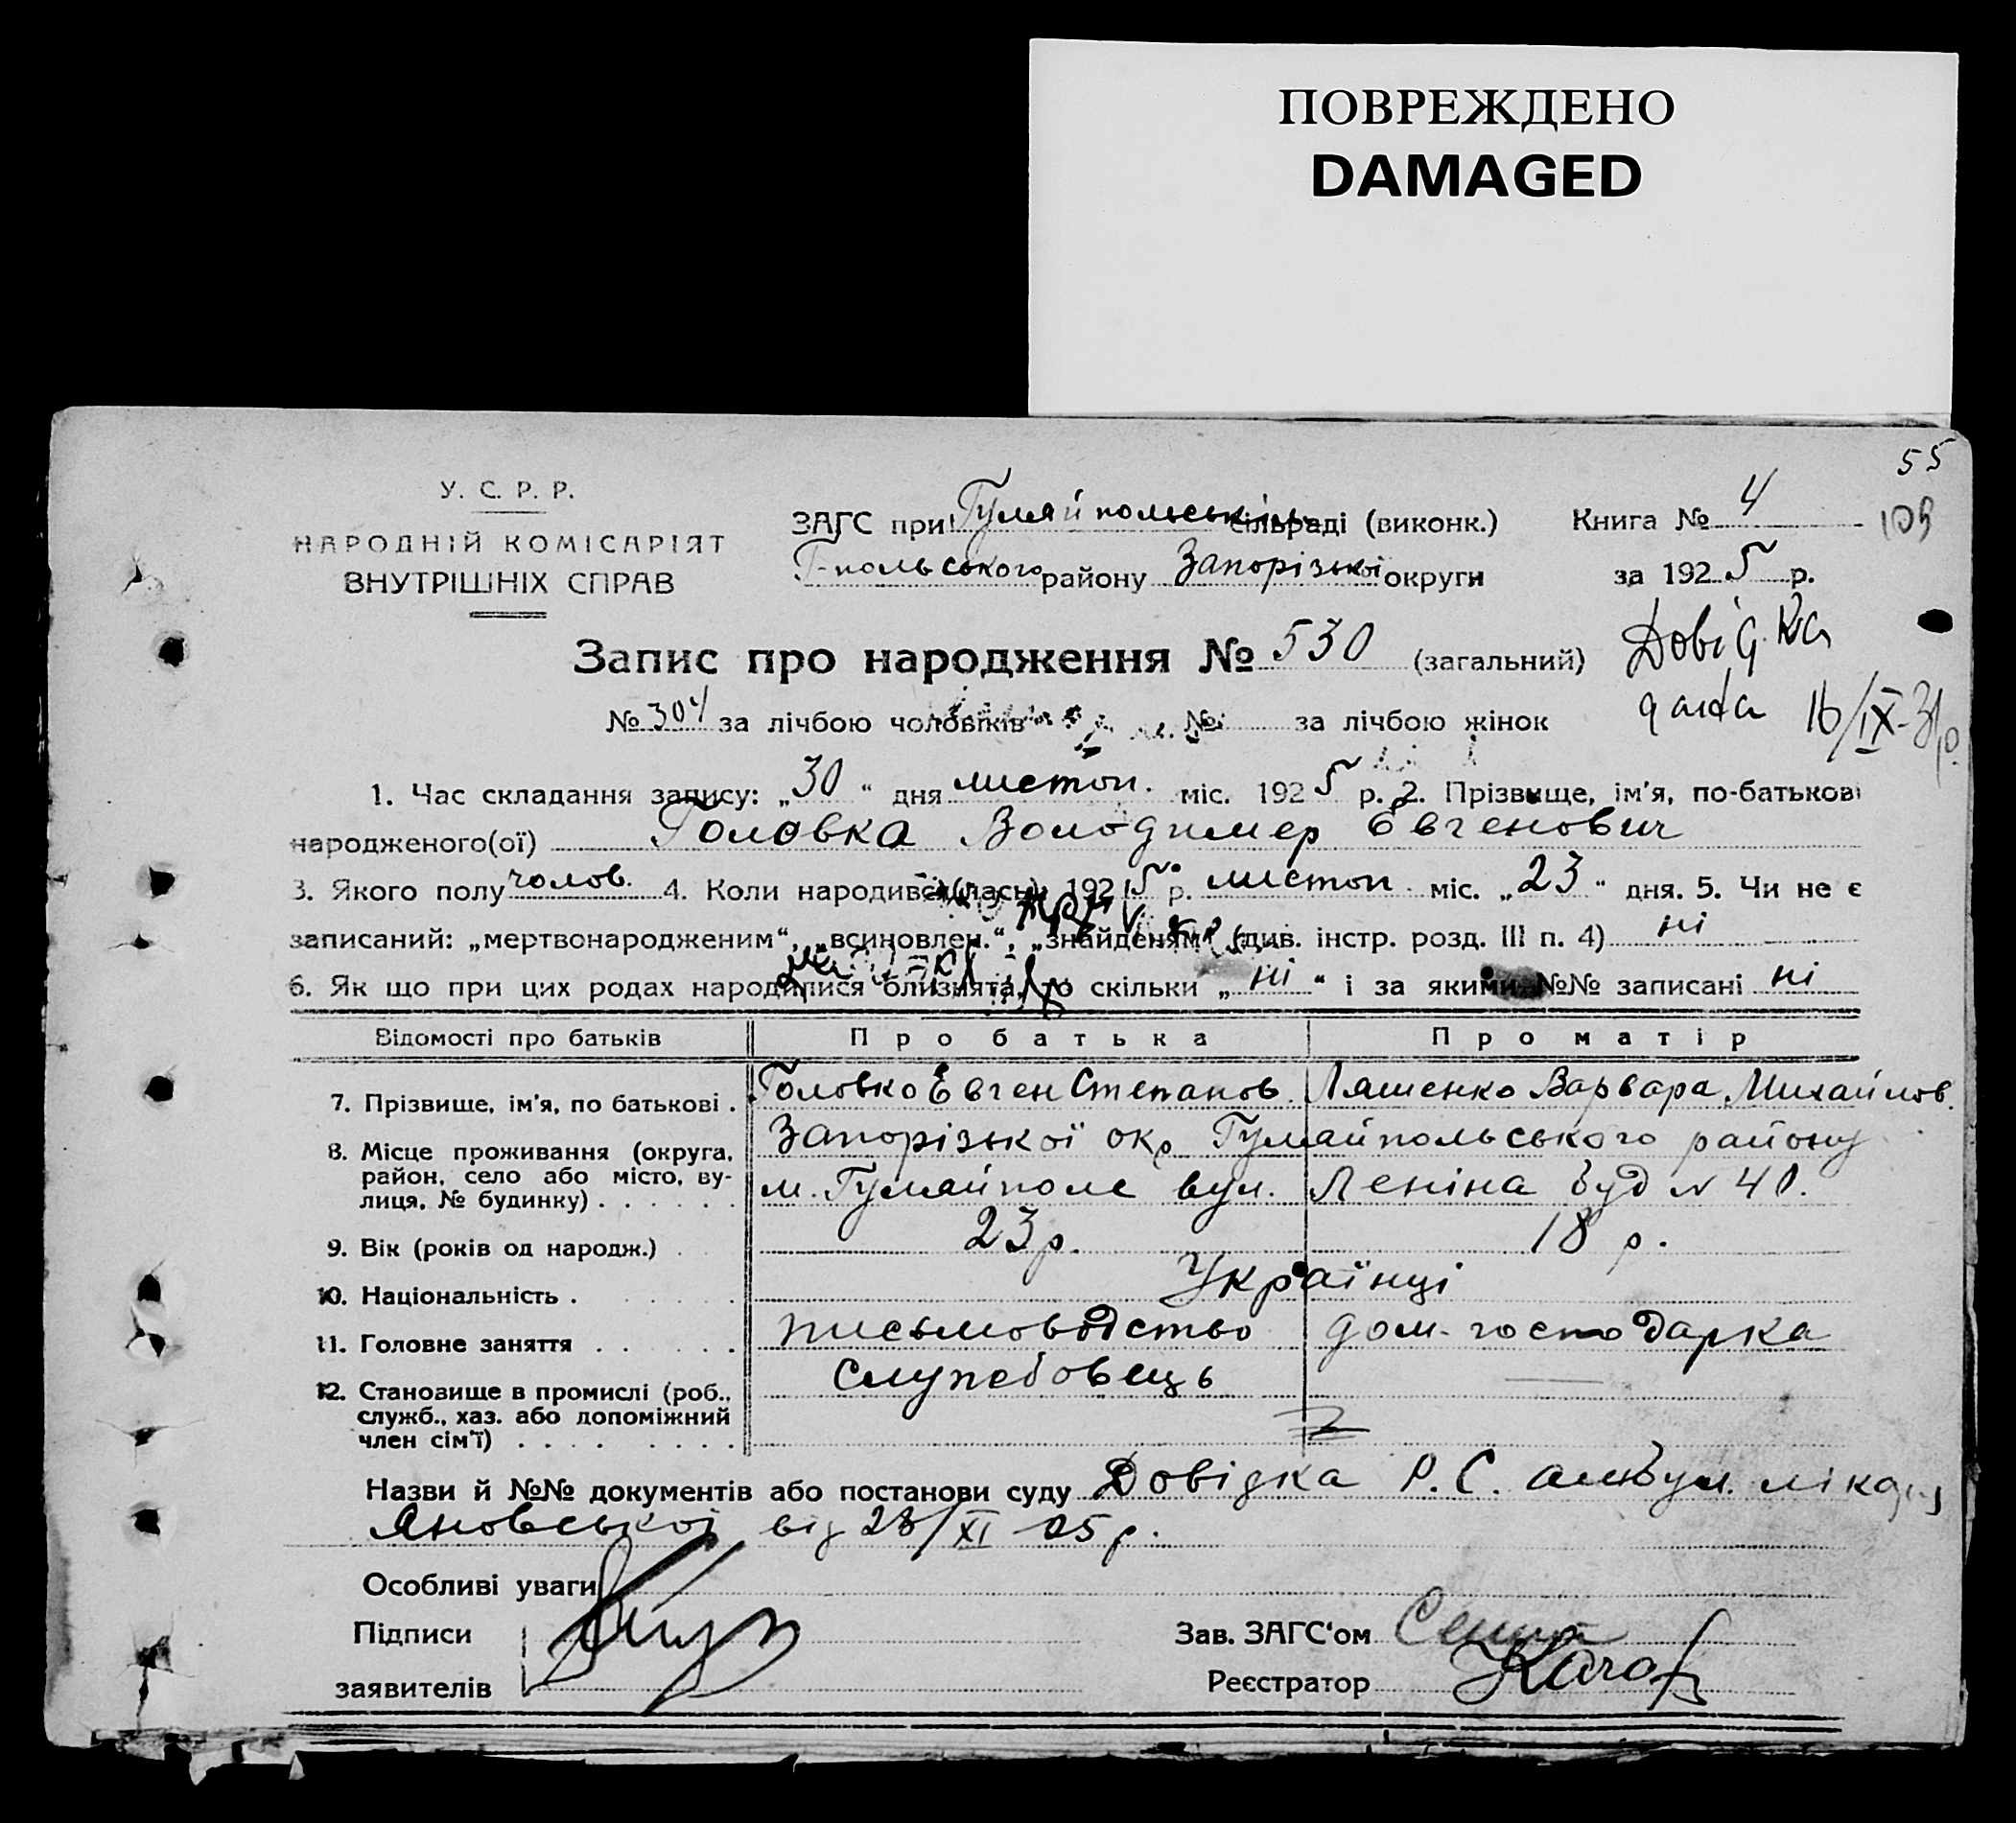 ПОВРЕЖДЕНО
DAMAGED
55
109
У. С. Р. Р.
НАРОДНІЙ КОМІСАРІЯТ
ВНУТРІШНІХ СПРАВ
ЗАГС при Гуляйпольськ. сільраді (виконк.) Книга № 4
Г-польського району Запорізької округи за 192 5 р.
Запис про народження № 530 (загальний)
Довідка
дата 16/IX-31р.
№ 304 за лічбою чоловіків № за лічбою жінок
1. Час складання запису: „30“ дня листоп. міс. 192 5 р. 2. Прізвище, ім'я, по-батькові
народженого(ої) Головка Володимер Євгенович
3. Якого полу чолов. 4. Коли народився(лась): 192 5 р. листоп. міс. „23“ дня. 5. Чи не є
записаний: „мертвонародженим“, „всиновлен.“, „знайденям“ (див. інстр. розд. III п. 4) ні
6. Як що при цих родах народилися близнята, то скільки „ні“ і за якими №№ записані ні
Відомості про батьків Про батька Про матір
7. Прізвище, ім'я, по батькові . Головко Євген Степанов. Ляшенко Варвара Михайлов.
8. Місце проживання (округа, район, село або місто, вулиця, № будинку) . . . . . . Запорізької окр Гуляйпольського району
м. Гуляйполе вул. Леніна буд № 40.
9. Вік (років од народж.) . 23 р. 18 р.
10. Національність . Українці
11. Головне заняття . . . . . . письмоводство дом-госпо дарка
12. Становище в промислі (роб., служб., хаз. або допоміжний член сім'ї) . . . . . . . . Служебовець —
Назви й №№ документів або постанови суду Довідка Р. С. амбул. лікаря
Яновської від 23/XI 25 р.
Особливі уваги
Підписи
заявителів
Зав. ЗАГС'ом
Реєстратор